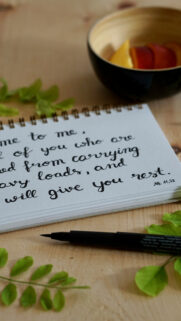 me to me,
of you who are
ed from carrying
avy loads, and
will give you rest.
Mt. 11,28